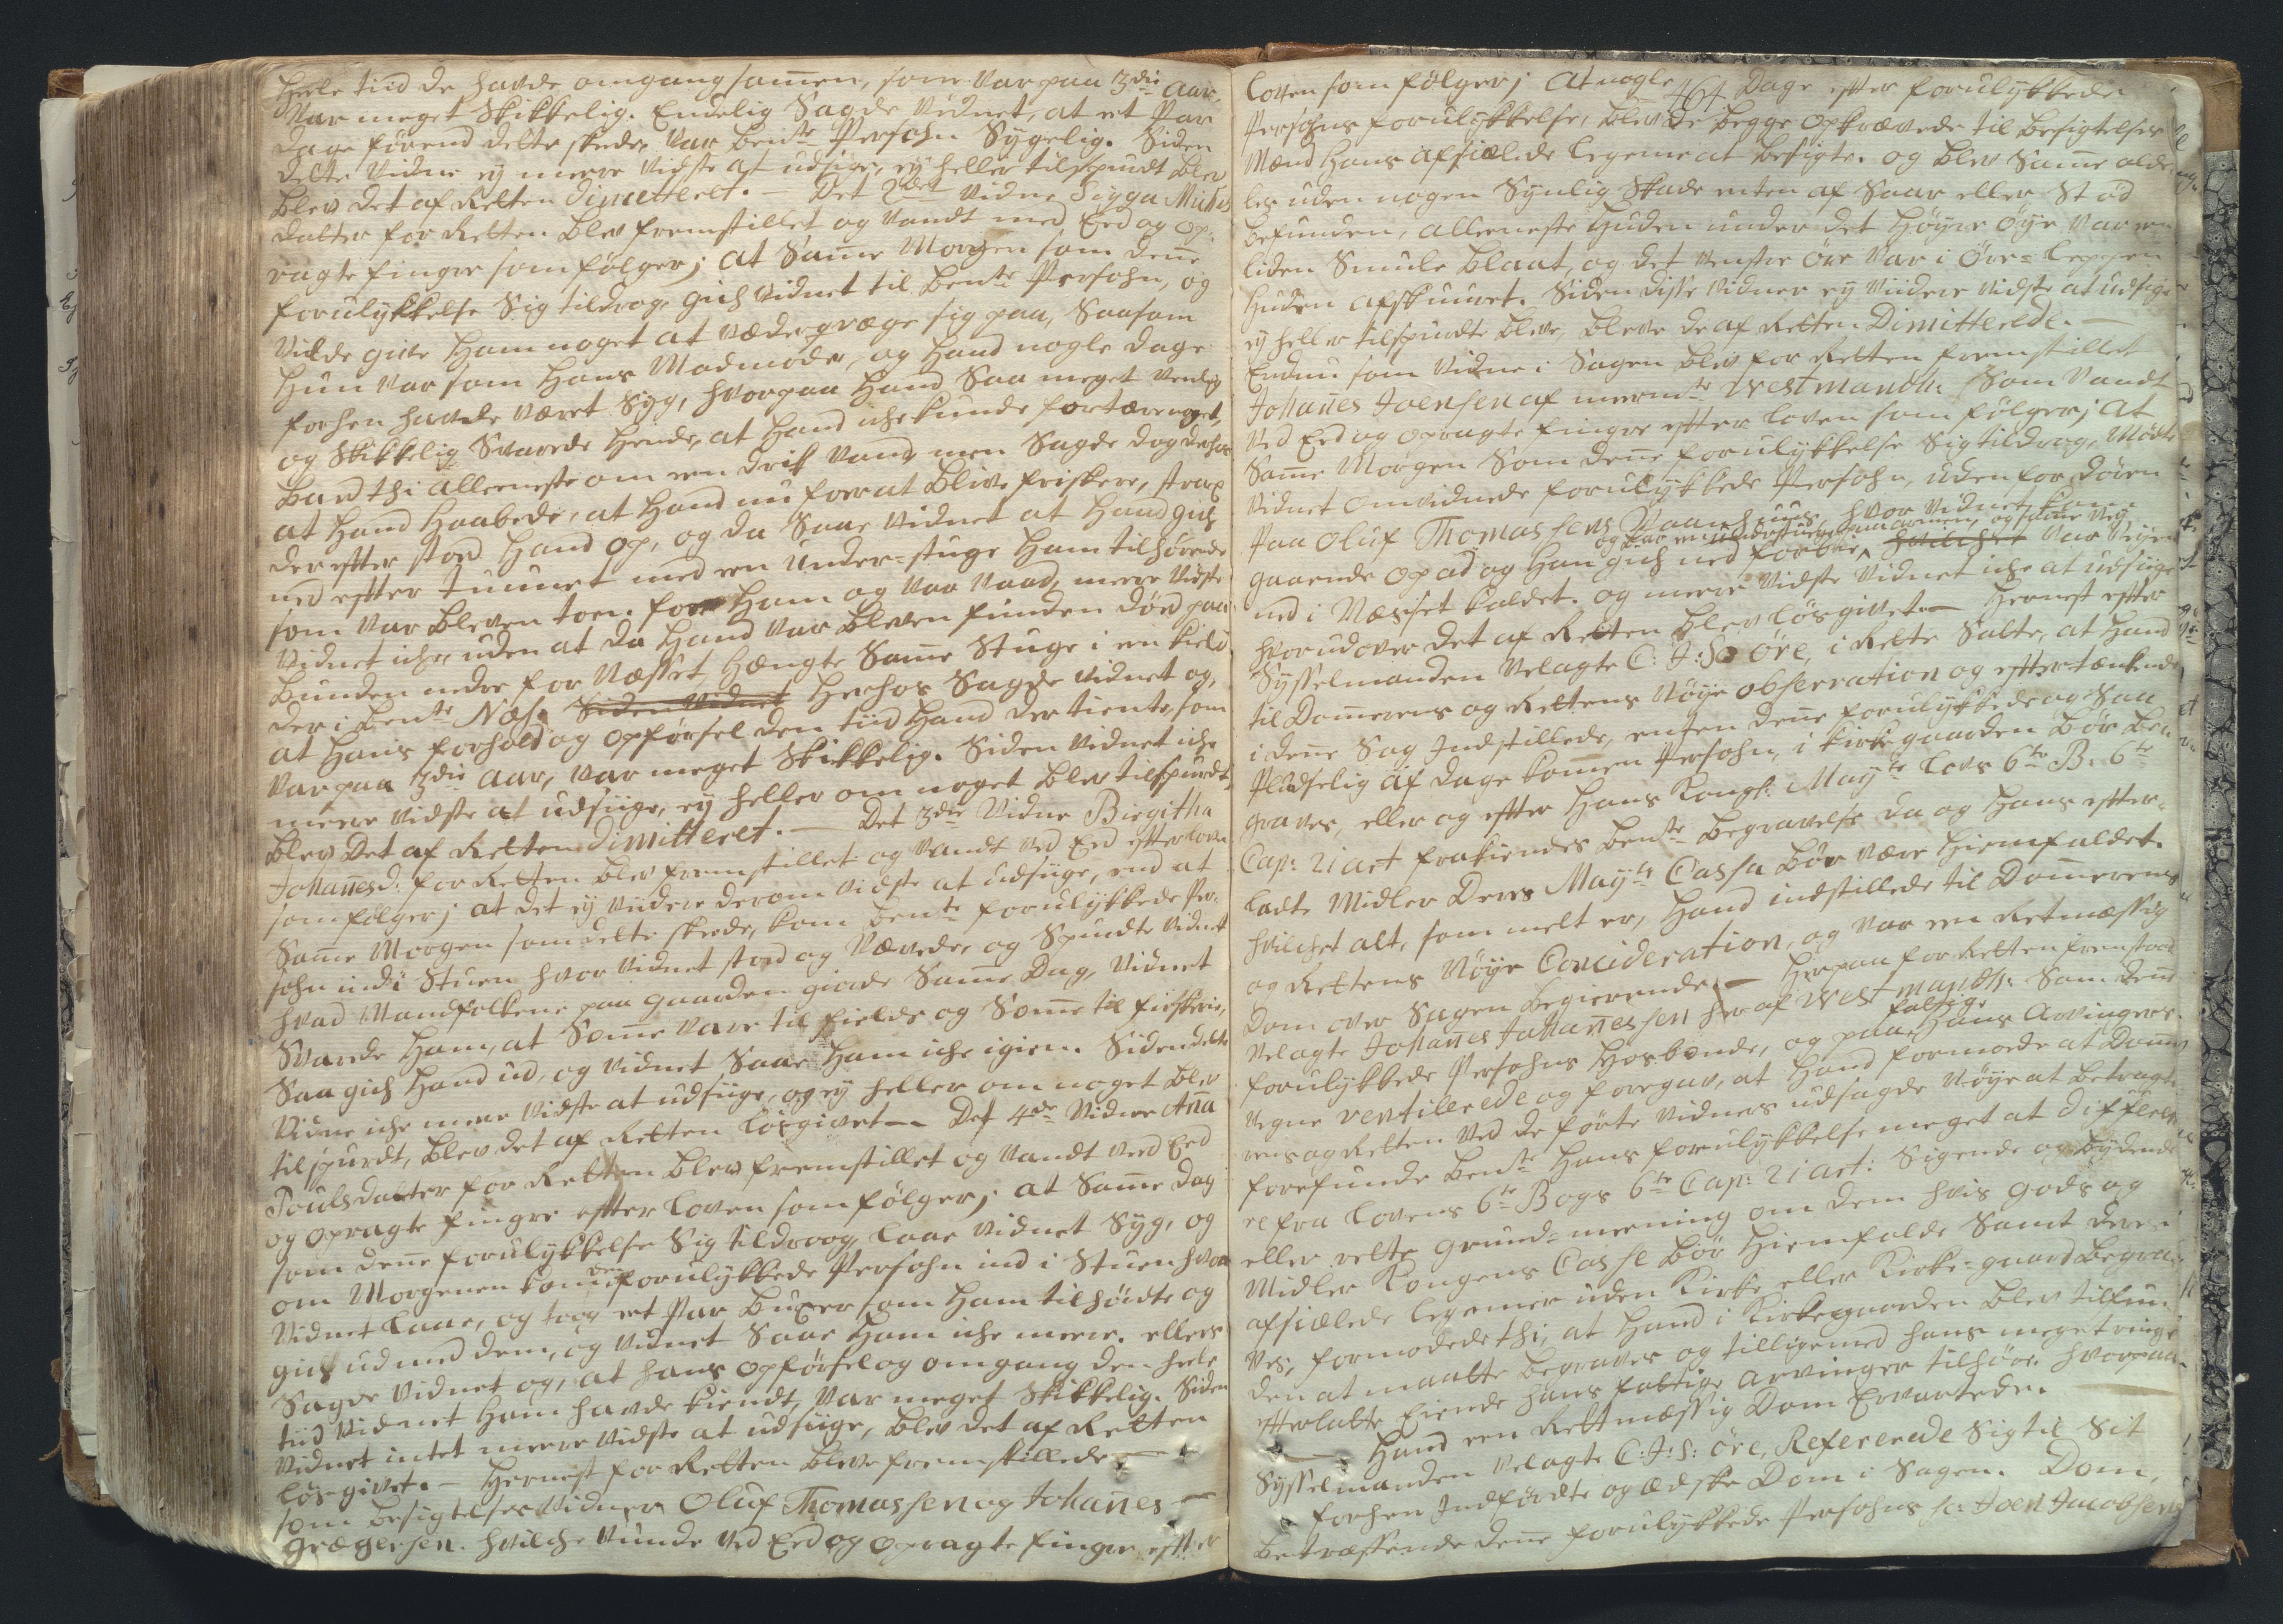 heele tiid de hafde omgang sam̄en, som var paa 3die aar,
var meget Skikkelig. Endelig Sagde Vidnet, at et Par
dage førend dette skede, var bente Persohn Sÿgelig. Siden
dette Vidne eÿ meere vidste at udsige, eÿ heller tilspurdt blev
blev det af Retten dimitteret. — Det 2det Vidne Sigga Michels
datter for Retten blev fremstillet og vandt med Eed og op-
ragte finger som følger; at Sam̄e Morgen som den̄e
forulÿkkelse Sig tildrog, gich Vidnet til bente Persohn, og
vilde give ham noget at væderqvæge sig paa, Saasom
hun var som hans Madmoder, og hand nogle dage
forhen hafde været Sÿg, hvorpaa hand Saa meget venlig
og Skikkelig Svarede hende, at hand iche kunde fortære noget,
bad thi alleeneste om een drik vand, men Sagde dog derhos
at hand haabede, at hand nu foer at blive friskere, strax
der efter stod hand op, og da Saae Vidnet at hand gich
ned efter tuunet med een Under-stuge ham tilhørende
som var bleven toen for ham og var vaad, meere vidste
Vidnet iche, uden at da hand var bleven funden død paa
bunden neder for Næsset, hængte Sam̄e Stuge i en kield
der i bente Næs. Siden Vidnet herhos Sagde Vidnet og,
at hans forhold og opførsel den tiid hand der tiente, som
var paa 3die aar, var meget Skikkelig. Siden Vidnet iche
meere vidste at udsiige, eÿ heller om noget blev tilspurdt,
blev det af Retten dimitteret. — Det 3die Vidne Birgitha
Johan̄esd: for Retten blev fremstillet og vandt ved Eed efter loven
som følger; at det eÿ viidere derom vidste at udsiige, end at
Sam̄e Morgen som dette skede, kom bente forulÿkkede Per-
sohn ind i Stuen hvor Vidnet stod og Vævede, og Spurdte Vidnet
hvad Mandfolkene paa gaarden giorde Sam̄e Dag, Vidnet
Svarede ham, at Som̄e vare til fields og Som̄e til fiskerie,
Saa gich hand ud, og Vidnet Saae ham iche igien. Siden dette
Vidne iche meere vidste at udsiige, og eÿ heller om noget blev
tilspurdt, blev det af Retten løsgivet — Det 4de Vidne An̄a
Poulsdatter for Retten blev fremstillet og vandt ved Eed
og opragte fingre efter loven som følger; at Sam̄e Dag
som den̄e forulÿkkelse Sig tildroog, laae Vidnet Sÿg, og
om Morgenen kom den forulÿkkede Persohn ind i Stuen hvor
Vidnet laae, og toog et Par buxer som ham tilhørte og
gich ud med dem, og Vidnet Saae ham iche meere. ellers
Sagde Vidnet og, at hans opførsel og omgang den heele
tiid Vidnet ham hafde kiendt, var meget Skikkelig. Siden
Vidnet intet meere vidste at udsiige, blev det af Retten
løsgivet. — Hernest for Retten bleve fremstillede —
som besigtelses Vidner Oluf Thomassen og Johan̄es —
Grægersen. hvilche vunde ved Eed og opragte finger efter
464
loven som følger; at nogle Dage efter forulÿkkede
Persohns forulÿkkelse, blev de begge opkrævede til besigtelses
Mænd hans afsiælede legeme at besigte. og blev Sam̄e alde-
les uden nogen Sÿnlig Skade enten af Saar eller Stød
befunden, alleeneste huden under det høÿre øÿe var een
liden Smule blaat, og det venstre øre var i øre-leppen
huden afskuuret. Siden disse Vidner eÿ viidere vidste at udsige
eÿ heller tilspurdte bleve, bleve de af Retten Dimitterede. —
Endnu som Vidne i Sagen blev for Retten fremstillet
Johan̄es Joensen af meermte Westmanh: Som vandt
ved Eed og opragte fingre efter loven som følger; at
Sam̄e Morgen Som den̄e forulÿkkelse Sig tildrog, Mødte
Vidnet omvidnede forulÿkkede Persohn, uden for døren
paa Oluf Thomassens Vaanhuus, hvor Vidnet kom
og bar een Understuge under armen, og sam̄e vej
gaaende opad og han gich ned forbie, hvilchet var Veÿen
ned i Næsset kaldet. og meere vidste Vidnet iche at udsiige
hvorudover det af Retten blev løsgivet. — Hernest efter
Sysselmanden Velagte C: J: S: øre, i Rette Satte, at hand
til Dom̄erens og Rettens Nøÿe observation og eftertænkende
i den̄e Sag Indstillede, enten den̄e forulÿkkede og Saa
Pludselig af dage kom̄en Persohn, i kirkegaarden bør be-
graves, eller og efter Hans Kongl: Mayts Lovs 6te B: 6te
Cap: 21 art frakiendes bente begravelse, da og hans efter-
ladte Midler Deres Mayts Cassa bør være hiemfaldet.
hvilchet alt, som melt er, hand indstillede til Dom̄erens
og Rettens Nøÿe Concideration, og var een Retmæssig
Dom over Sagen begierende. — Herpaa for Retten fremstoed
Velagte Johan̄es Johan̄essen her af Westmanh: Som den̄e
forulÿkkede Persohns Hosbonde, og paa hans fattige Arvingers
Vegne ventilerede og foregav, at hand formoede at Dom̄e-
rens og Retten ved de førte Vidners udsagde Nøÿe at betragte
forefunde bente hans forulÿkkelse meget at differe-
re fra Lovens 6te Bogs 6te Cap: 21 art: Sigende og bÿdende
eller rette grund-meening om dem hvis gods og
Midler Kongens Casse bør hiemfalde Samt deres
afsiælede legemer uden Kirke eller Kirke-gaard begra-
ves; formodede thi, at hand i Kirkegaarden blev tilfun-
den at maatte begraves og tilligemed hans meget ringe
efterlatte Eiende hans fattige arvinger tilhøre. hvorpaa
— hand een Rettmæssig Dom Ervartede.
Sysselmanden Velagte C: J: S: øre, Refererede Sig til Sit
forhen Indførdte og ædskede Dom i Sagen. Dom,
betræffende den̄e forulÿkkede Persohns Sl: Joen Jacobsens